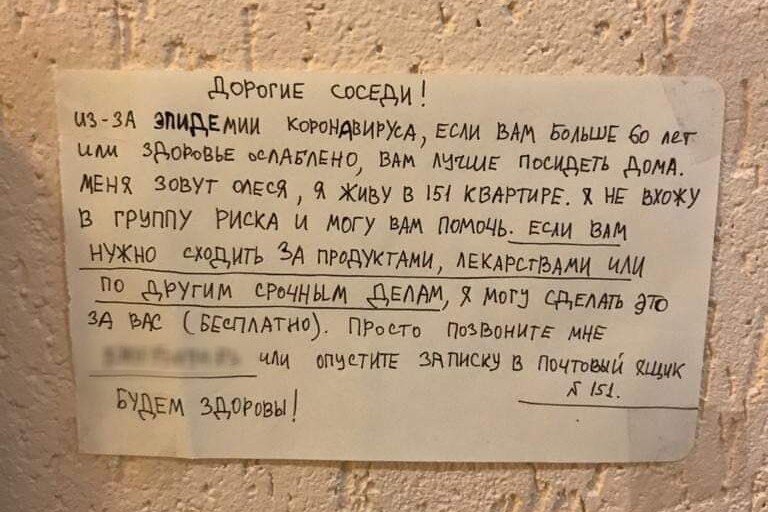 ДОРОГИЕ СОСЕДИ!
ИЗ-ЗА ЭПИДЕМИИ КОРОНАВИРУСА, ЕСЛИ ВАМ БОЛЬШЕ 60 ЛЕТ
ИЛИ ЗДОРОВЬЕ ОСЛАБЛЕНО, ВАМ ЛУЧШЕ ПОСИДЕТЬ ДОМА.
МЕНЯ ЗОВУТ ОЛЕСЯ, Я ЖИВУ В 151 КВАРТИРЕ. Я НЕ ВХОЖУ
В ГРУППУ РИСКА И МОГУ ВАМ ПОМОЧЬ. ЕСЛИ ВАМ
НУЖНО СХОДИТЬ ЗА ПРОДУКТАМИ, ЛЕКАРСТВАМИ ИЛИ
ПО ДРУГИМ СРОЧНЫМ ДЕЛАМ, Я МОГУ СДЕЛАТЬ ЭТО
ЗА ВАС (БЕСПЛАТНО). ПРОСТО ПОЗВОНИТЕ МНЕ
ИЛИ ОПУСТИТЕ ЗАПИСКУ В ПОЧТОВЫЙ ЯЩИК
№ 151.
БУДЕМ ЗДОРОВЫ!